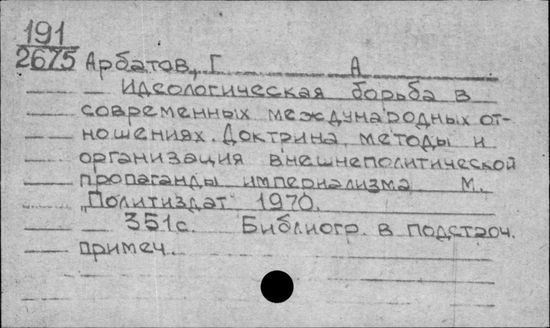 191
2675 Арбатов, Г. А.
Идеологическая борьба в
современных международных от-
ношениях. Доктрина, методы и
организация внешнеполитической
пропаганды империализма М.
"Политиздат" 1970.
351с. Библиогр. в подстроч.
примеч.